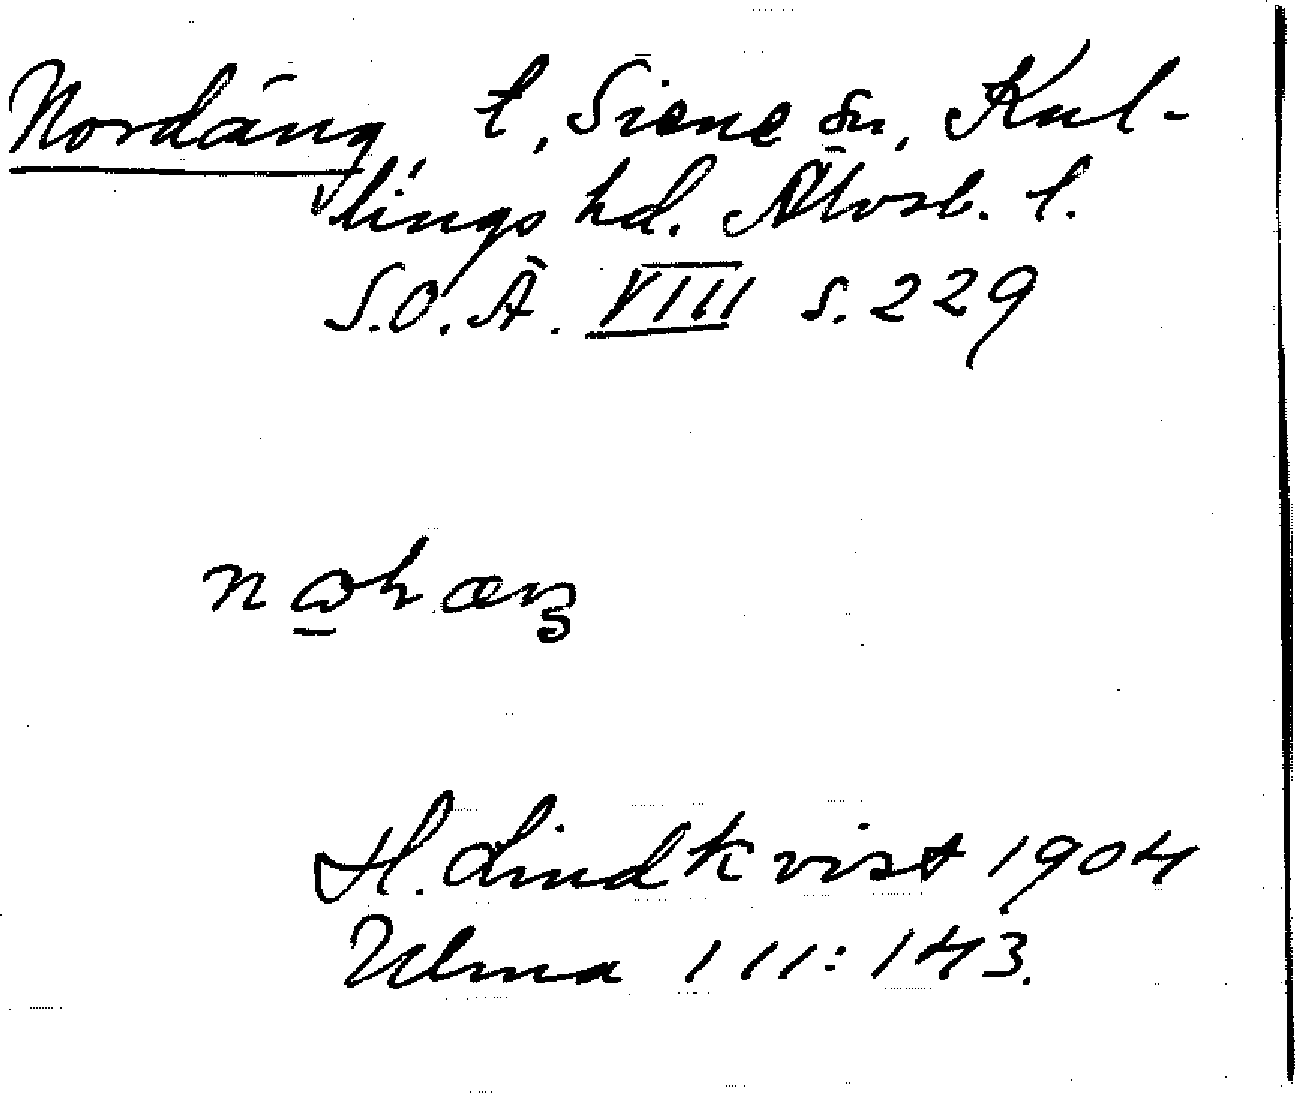 Nordäng, t, Siene sn, Kul-
lings hd. Älvsb. l.
S.O.Ä. VIII s. 229
H. Lindkvist 1904
Ulma 111:143.